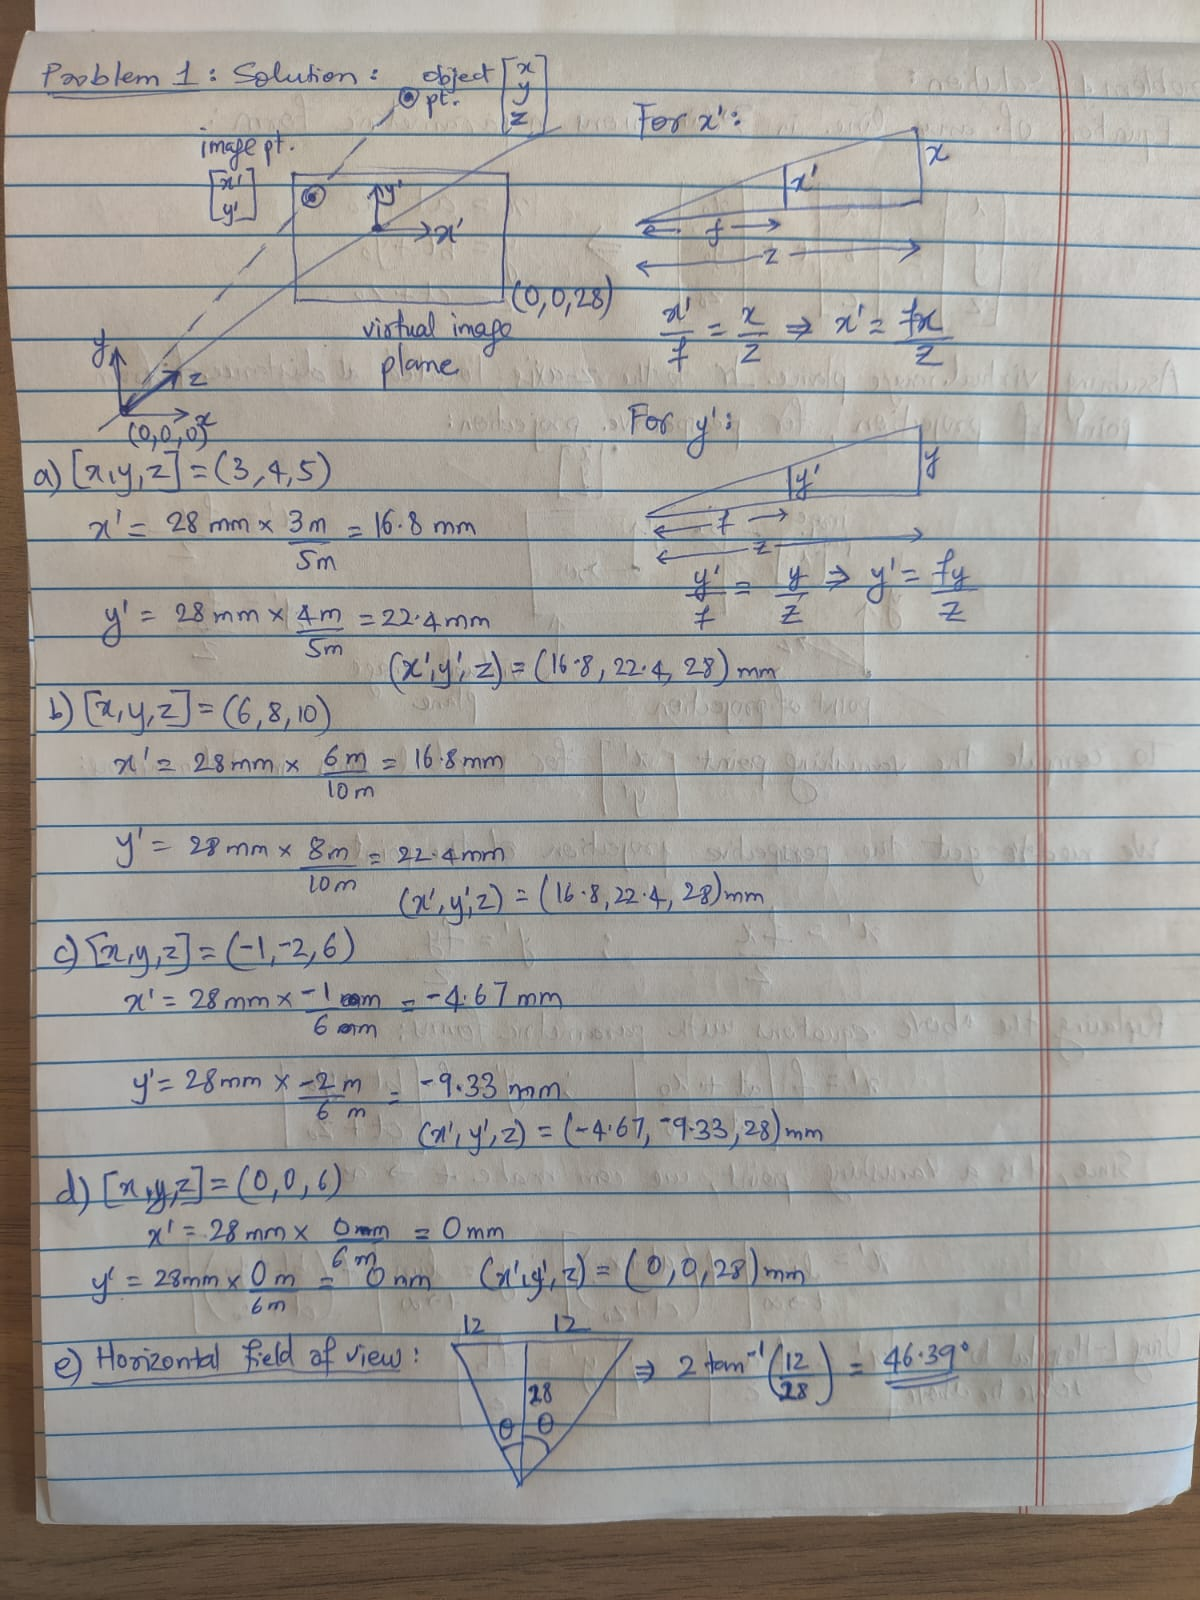 Problem 1: Solution:
object pt. [x y z]
image pt.
[x' y']
y'
x'
(0,0,28)
virtual image
plane
y
z
x
(0,0,0)
For x':
x'
x
f
z
x'/f = x/z ⇒ x' = fx/z
For y':
y'
y
f
z
y'/f = y/z ⇒ y' = fy/z
a) [x,y,z] = (3,4,5)
x' = 28 mm × 3m/5m = 16.8 mm
y' = 28 mm × 4m/5m = 22.4 mm
(x', y', z) = (16.8, 22.4, 28) mm
b) [x,y,z] = (6,8,10)
x' = 28mm × 6m/10m = 16.8mm
y' = 28mm × 8m/10m = 22.4mm
(x', y', z) = (16.8, 22.4, 28) mm
c) [x,y,z] = (-1,-2,6)
x' = 28mm × -1 m/6 m = -4.67 mm
y' = 28mm × -2 m/6 m = -9.33 mm
(x', y', z) = (-4.67, -9.33, 28) mm
d) [x,y,z] = (0,0,6)
x' = 28 mm × 0 m/6 m = 0 mm
y' = 28mm × 0 m/6m = 0 mm (x', y', z) = (0, 0, 28) mm
e) Horizontal field of view:
12 12
28
θ θ
⇒ 2 tan⁻¹(12/28) = 46.39°